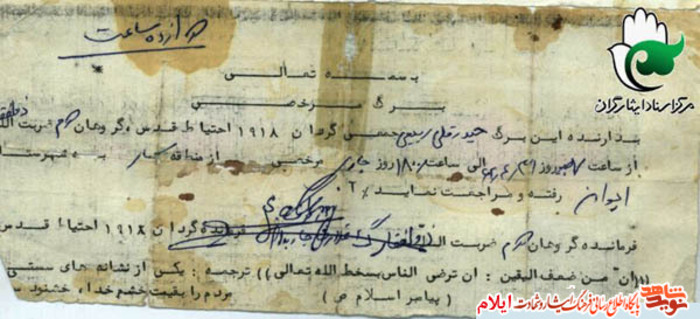 دوازده ساعت
بسمه تعالی
برگ مرخصی
مرکز اسناد ایثارگران
بدارنده این برگ حیدرقلی ربیعی جمعی گردان ۱۹۱۸ احتیاط قدس، گروهان سوم ضربت
از ساعت روز الی ساعت ۱۸۰۰ روز جاری مرخصی از منطقه به شهرستان
ایوان رفته و مراجعت نماید
فرمانده گروهان سوم ضربت فرمانده گردان ۱۹۱۸ احتیاط قدس
((ان من ضعف الیقین : ان ترضی الناس بسخط الله تعالی)) ترجمه : یکی از نشانه های سستی
( پیامبر اسلام ص ) مردم را بقیمت خشم خدا، خشنود
نوید شاهد
پایگاه اطلاع رسانی فرهنگ ایثار و شهادت ایلام